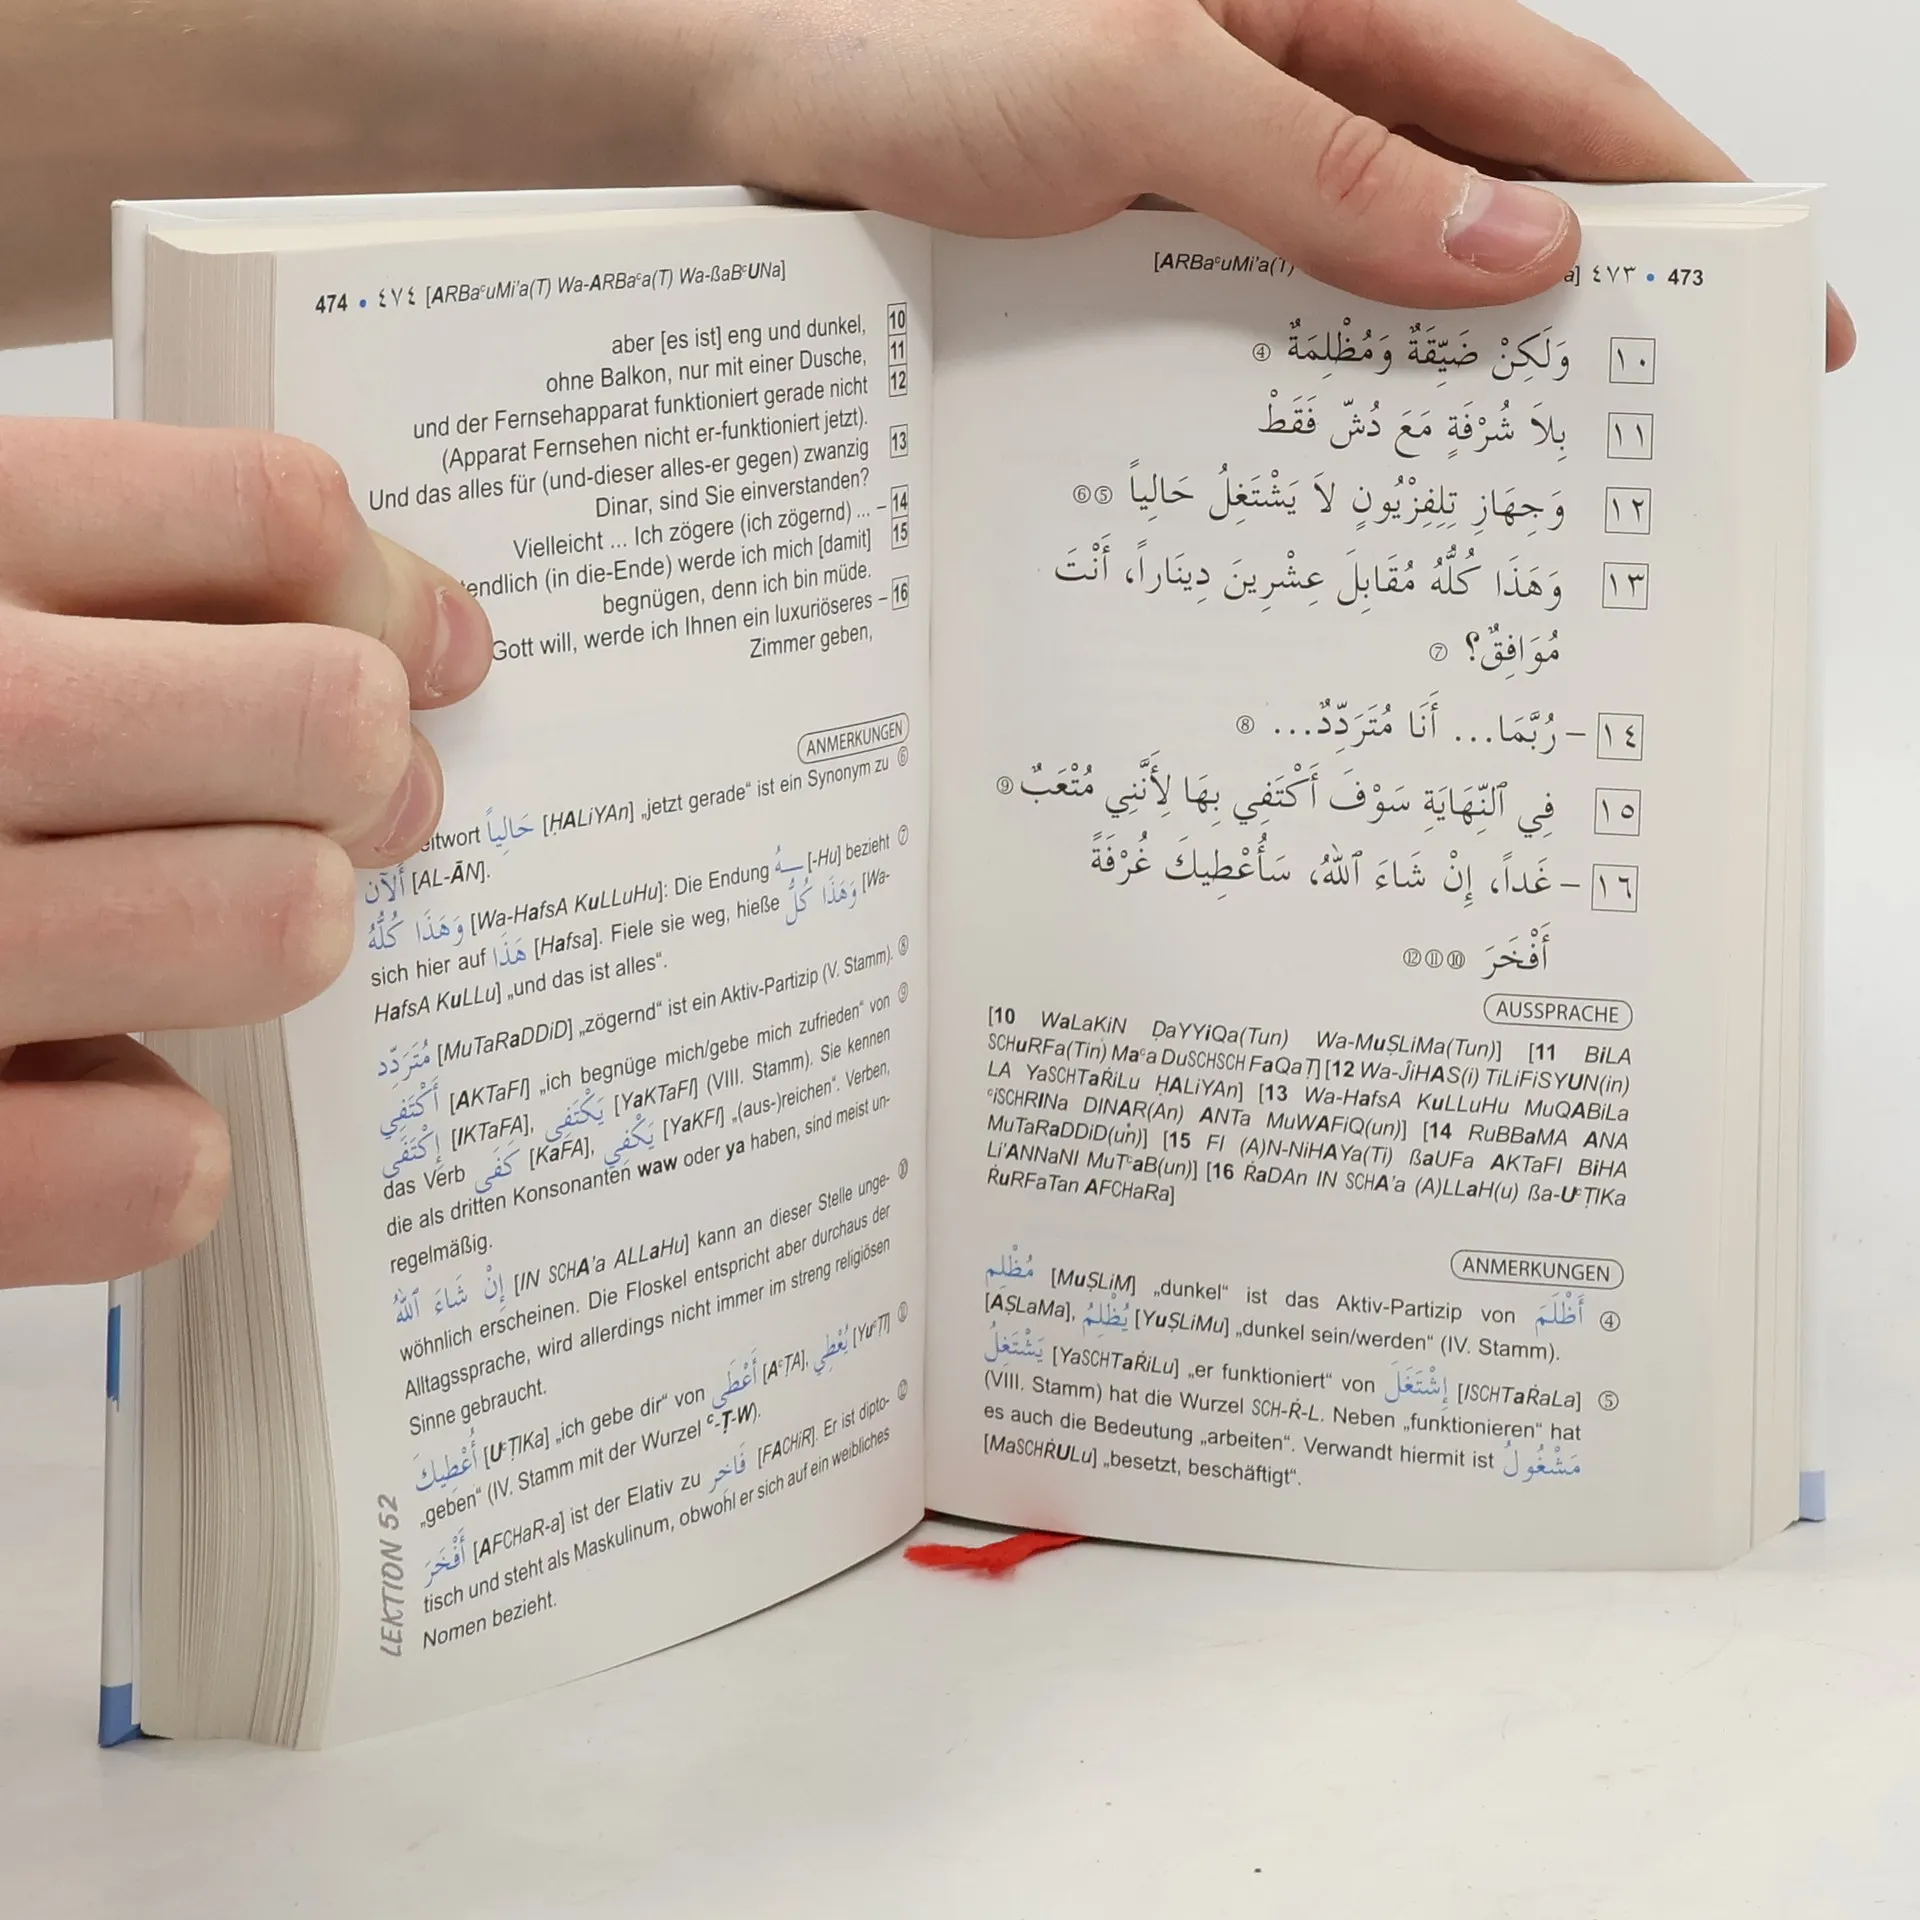 474 • ٤٧٤ [ARBaᶜuMi'a(T) Wa-ARBaᶜa(T) Wa-ßaBᶜUNa]
aber [es ist] eng und dunkel, 10
ohne Balkon, nur mit einer Dusche, 11
und der Fernsehapparat funktioniert gerade nicht 12
(Apparat Fernsehen nicht er-funktioniert jetzt).
Und das alles für (und-dieser alles-er gegen) zwanzig 13
Dinar, sind Sie einverstanden?
Vielleicht ... Ich zögere (ich zögernd) ... – 14
(in die-Ende) werde ich mich [damit] 15
begnügen, denn ich bin müde.
Gott will, werde ich Ihnen ein luxuriöseres – 16
Zimmer geben,
ANMERKUNGEN
حَالِياً [ḤALiYAn] „jetzt gerade“ ist ein Synonym zu ⑥
أَلآن [AL-ĀN].
وَهَذَا كُلُّهُ [Wa-HafsA KuLLuHu]: Die Endung ـهُ [-Hu] bezieht ⑦
sich hier auf هَذَا [Hafsa]. Fiele sie weg, hieße وَهَذَا كُلُّ [Wa-
HafsA KuLLu] „und das ist alles“.
مُتَرَدِّد [MuTaRaDDiD] „zögernd“ ist ein Aktiv-Partizip (V. Stamm). ⑧
أَكْتَفِي [AKTaFI] „ich begnüge mich/gebe mich zufrieden“ von ⑨
إِكْتَفَى [IKTaFA], يَكْتَفِي [YaKTaFI] (VIII. Stamm). Sie kennen
das Verb كَفَى [KaFA], يَكْفِي [YaKFI] „(aus-)reichen“. Verben,
die als dritten Konsonanten waw oder ya haben, sind meist un-
regelmäßig.
إِنْ شَاءَ ٱللهُ [IN SCHA'a ALLaHu] kann an dieser Stelle unge- ⑩
wöhnlich erscheinen. Die Floskel entspricht aber durchaus der
Alltagssprache, wird allerdings nicht immer im streng religiösen
Sinne gebraucht.
أُعْطِيكَ [UᶜṬIKa] „ich gebe dir“ von أَعْطَى [AᶜṬA], يُعْطِي [YuᶜṬI] ⑪
„geben“ (IV. Stamm mit der Wurzel ᶜ-Ṭ-W).
أَفْخَرَ [AFCHaR-a] ist der Elativ zu فَاخِر [FACHiR]. Er ist dipto- ⑫
tisch und steht als Maskulinum, obwohl er sich auf ein weibliches
Nomen bezieht.
LEKTION 52
[ARBaᶜuMi'a(T) a] ٤٧٣ • 473
١٠ وَلَكِنْ ضَيِّقَةٌ وَمُظْلِمَةٌ ④
١١ بِلاَ شُرْفَةٍ مَعَ دُشّ فَقَطْ
١٢ وَجِهَازِ تِلِفِزْيُونٍ لاَ يَشْتَغِلُ حَالِياً ⑤⑥
١٣ وَهَذَا كُلُّهُ مُقَابِلَ عِشْرِينَ دِينَاراً، أَنْتَ
مُوَافِقٌ؟ ⑦
١٤ – رُبَّمَا... أَنَا مُتَرَدِّدٌ... ⑧
١٥ فِي ٱلنِّهَايَةِ سَوْفَ أَكْتَفِي بِهَا لِأَنَّنِي مُتْعَبٌ ⑨
١٦ – غَداً، إِنْ شَاءَ ٱللهُ، سَأُعْطِيكَ غُرْفَةً
أَفْخَرَ ⑩⑪⑫
AUSSPRACHE
[10 WaLaKiN ḌaYYiQa(Tun) Wa-MuṢLiMa(Tun)] [11 BiLA
SCHuRFa(Tin) Maᶜa DuSCHSCH FaQaṬ] [12 Wa-ĴiHAS(i) TiLiFiSYUN(in)
LA YaSCHTaṘiLu ḤALiYAn] [13 Wa-HafsA KuLLuHu MuQABiLa
ᶜiSCHRINa DINAR(An) ANTa MuWAFiQ(un)] [14 RuBBaMA ANA
MuTaRaDDiD(un)] [15 FI (A)N-NiHAYa(Ti) ßaUFa AKTaFI BiHA
Li'ANNaNI MuTᶜaB(un)] [16 ṘaDAn IN SCHA'a (A)LLaH(u) ßa-UᶜṬIKa
ṘuRFaTan AFCHaRa]
ANMERKUNGEN
مُظْلِم [MuṢLiM] „dunkel“ ist das Aktiv-Partizip von أَظْلَمَ ④
[AṢLaMa], يُظْلِمُ [YuṢLiMu] „dunkel sein/werden“ (IV. Stamm).
يَشْتَغِلُ [YaSCHTaṘiLu] „er funktioniert“ von إِشْتَغَلَ [ISCHTaṘaLa] ⑤
(VIII. Stamm) hat die Wurzel SCH-Ṙ-L. Neben „funktionieren“ hat
es auch die Bedeutung „arbeiten“. Verwandt hiermit ist مَشْغُولُ
[MaSCHṘULu] „besetzt, beschäftigt“.